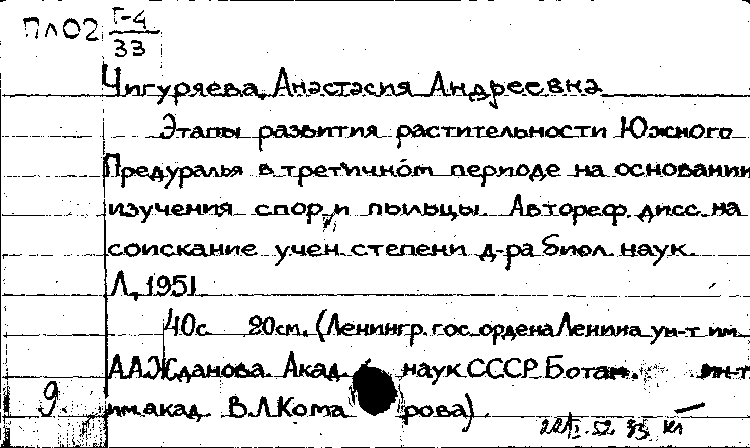 ПЛ02 Г-4
33
Чигуряева, Анастасия Андреевна
Этапы развития растительности Южного
Предуралья в третичном периоде на основании
изучения спор и пыльцы. Автореф. дисс. на
соискание учен. степени д-ра биол. наук.
Л, 1951
40с 20см. (Ленингр. гос. ордена Ленина ун-т им
А.А.Жданова. Акад. наук СССР. Ботан. ин-т
9. им. акад. В.Л.Кома рова)